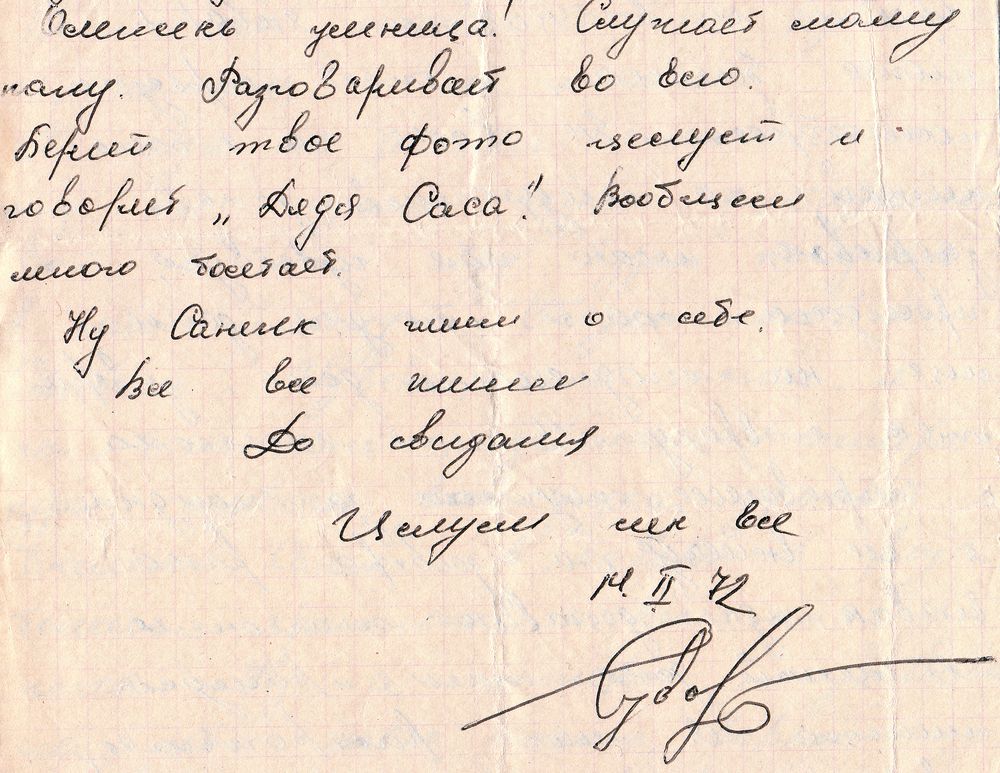 умница! Слушает маму
папу. Разговаривает во всю.
Берет твое фото целует и
говорит „Дядя Саса". Вообщем
много болтает.
Ну Санек пиши о себе.
Все все пиши
До свидания
Целуем все
14. II 72